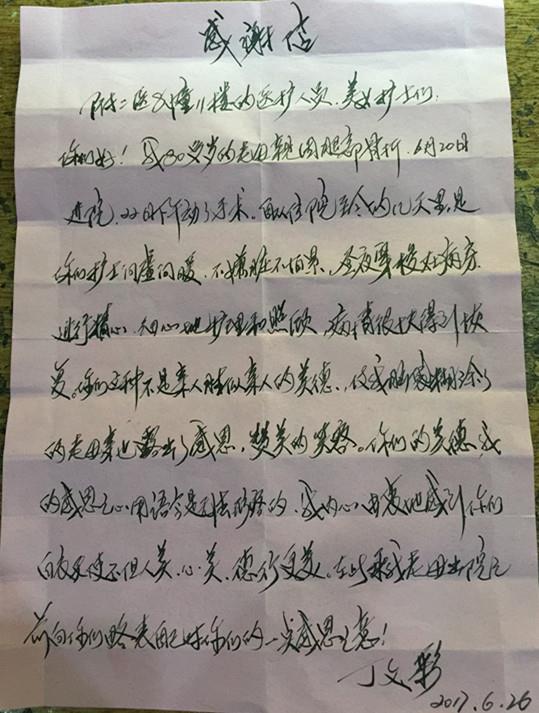 感谢信
附二医8幢11楼的医护人员、美女护士们:
你们好!我80岁的老母亲因腿部骨折,6月20日
进院,22日下午动了手术。自从住院至今的几天里,是
你们护士问虚问暖,不嫌脏不怕累,昼夜穿梭在病房
进行精心、细心地护理和照顾,病情很快得到恢
复。你们这种不是亲人胜似亲人的美德,使我脑海糊涂
的老母亲也露出了感恩,赞美的笑容。你们的美德,我
的感恩之心用语言是无法形容的,我内心由衷地感到你们
白衣天使不但人美、心美、德行更美。在此乘我老母出院之
前向你们略表自己对你们的一点感恩之意!
丁文彩
2017.6.26